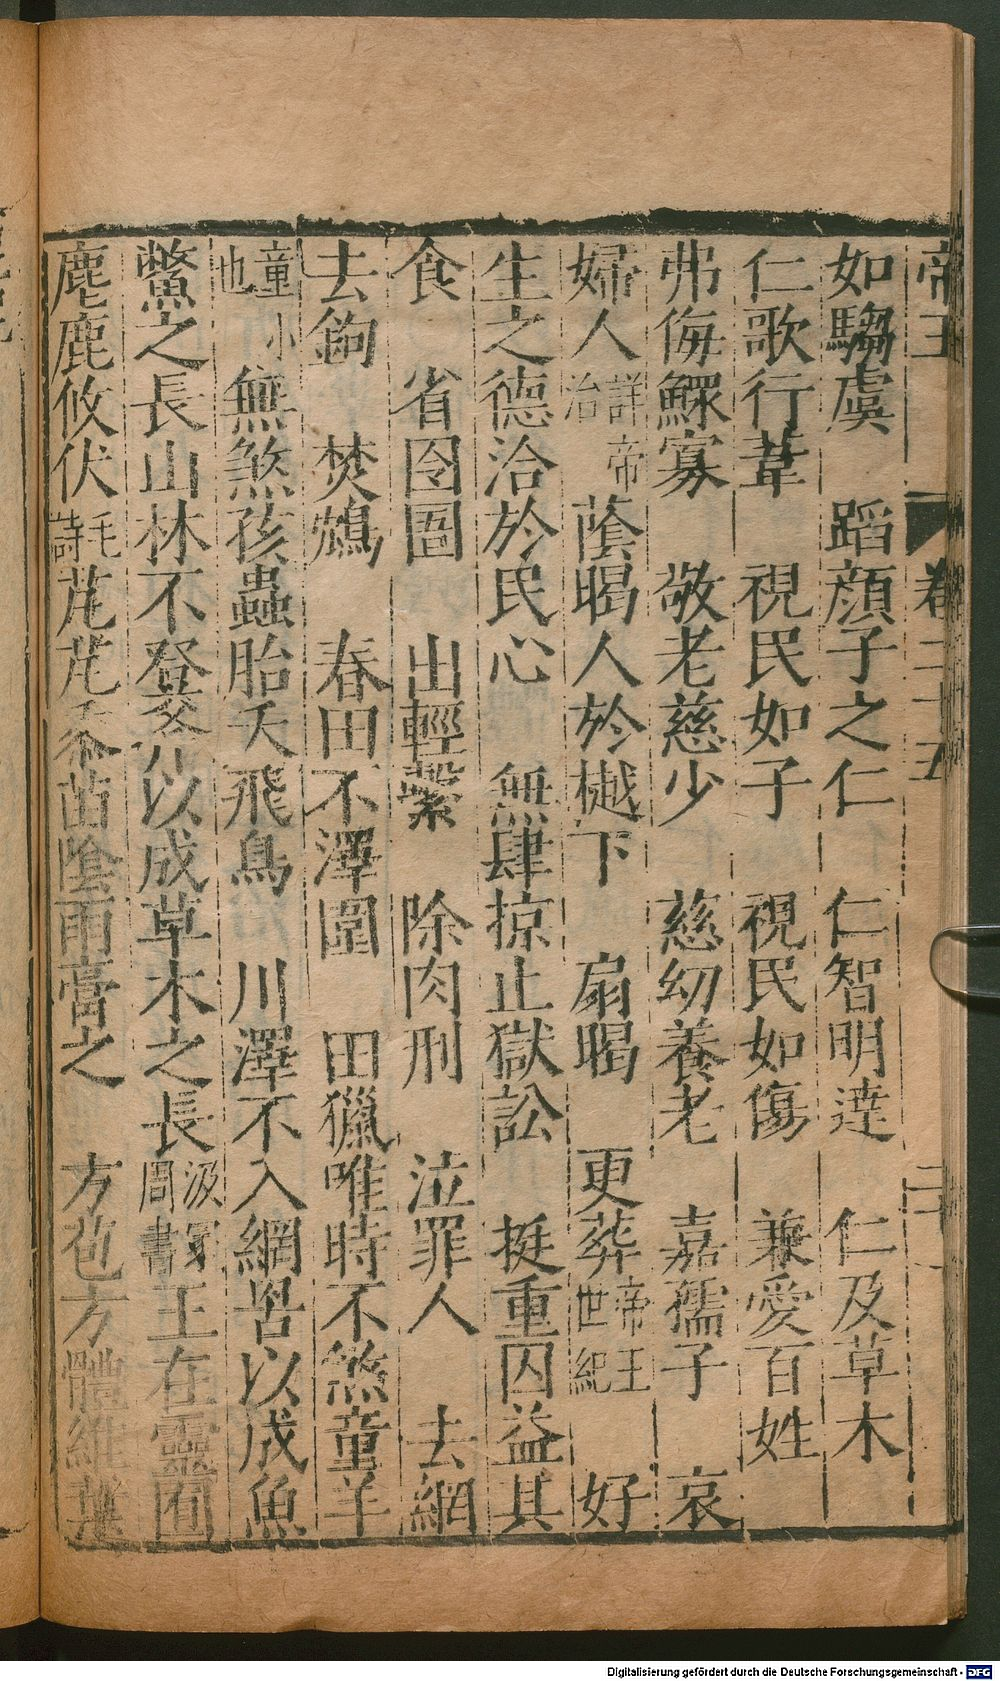 帝王 卷二十五 二十
如騶虞 蹈顔子之仁 仁智明逹 仁及草木
仁歌行葦 視民如子 視民如傷 兼愛百姓
弗侮鰥寡 敬老慈少 慈幼養老 嘉孺子 哀
婦人詳帝治 蔭暍人於樾下 扇暍 更葬帝王世紀 好
生之德洽於民心 無肆掠止獄訟 挺重囚益其
食 省囹圄 出輕繫 除肉刑 泣罪人 去網
去鉤 焚鴆 春田不澤圍 田獵唯時不煞童羊
童小也 無煞孩蟲胎夭飛鳥 川澤不入網罟以成魚
鱉之長山林不登斧斤以成草木之長汲冢周書王在靈囿
麀鹿攸伏毛詩芃芃黍苗陰雨膏之 方苞方體維葉
Digitalisierung gefördert durch die Deutsche Forschungsgemeinschaft - DFG